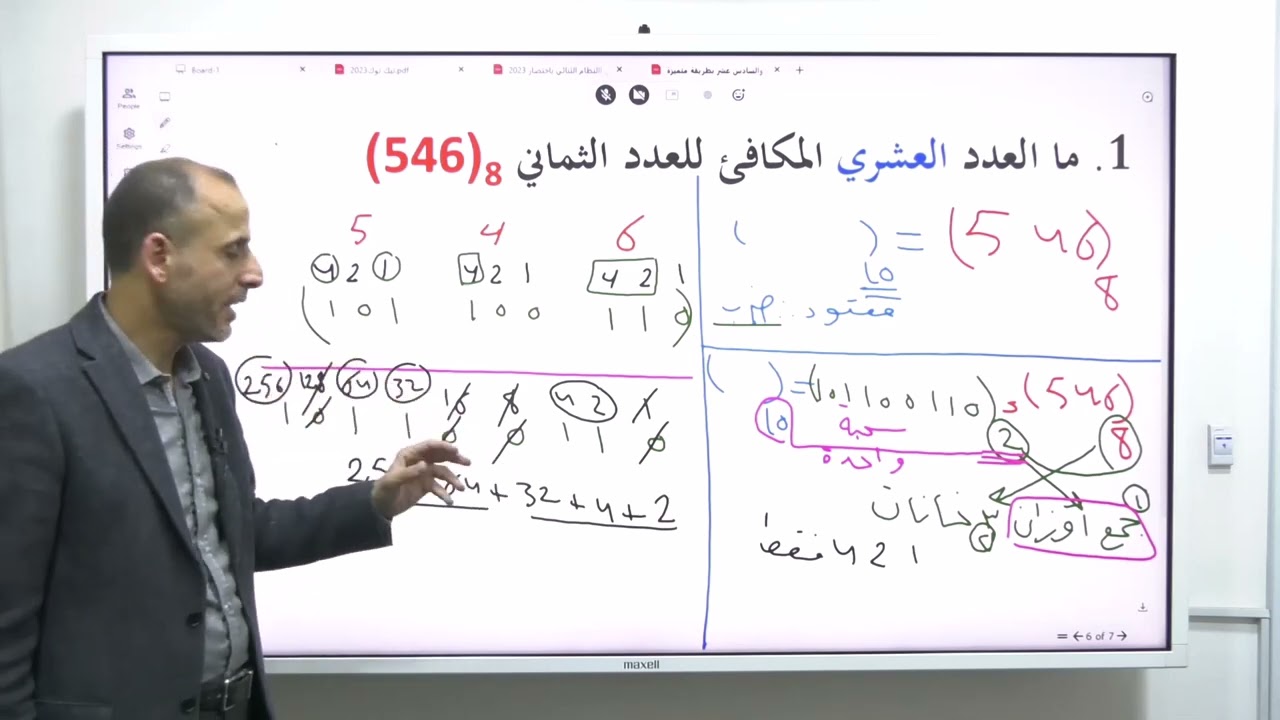 Board-1
تيك توك2023.pdf
النظام الثنائي باختصار 2023
والسادس عشر بطريقة متميزة
People
Settings
1. ما العدد العشري المكافئ للعدد الثماني (546)8
5 4 6
4 2 1 4 2 1 4 2 1
(1 0 1 1 0 0 1 1 0)
256 128 64 32 16 8 4 2 1
1 0 1 1 0 0 1 1 0
64 + 32 + 4 + 2
( )10 = (546)8
مفقود :
( )10 = (101100110)2 (546)8
سحبة
واحدة
1
جمع اوزان
2
٣ خانات
4 2 1 فقط
6 of 7
maxell